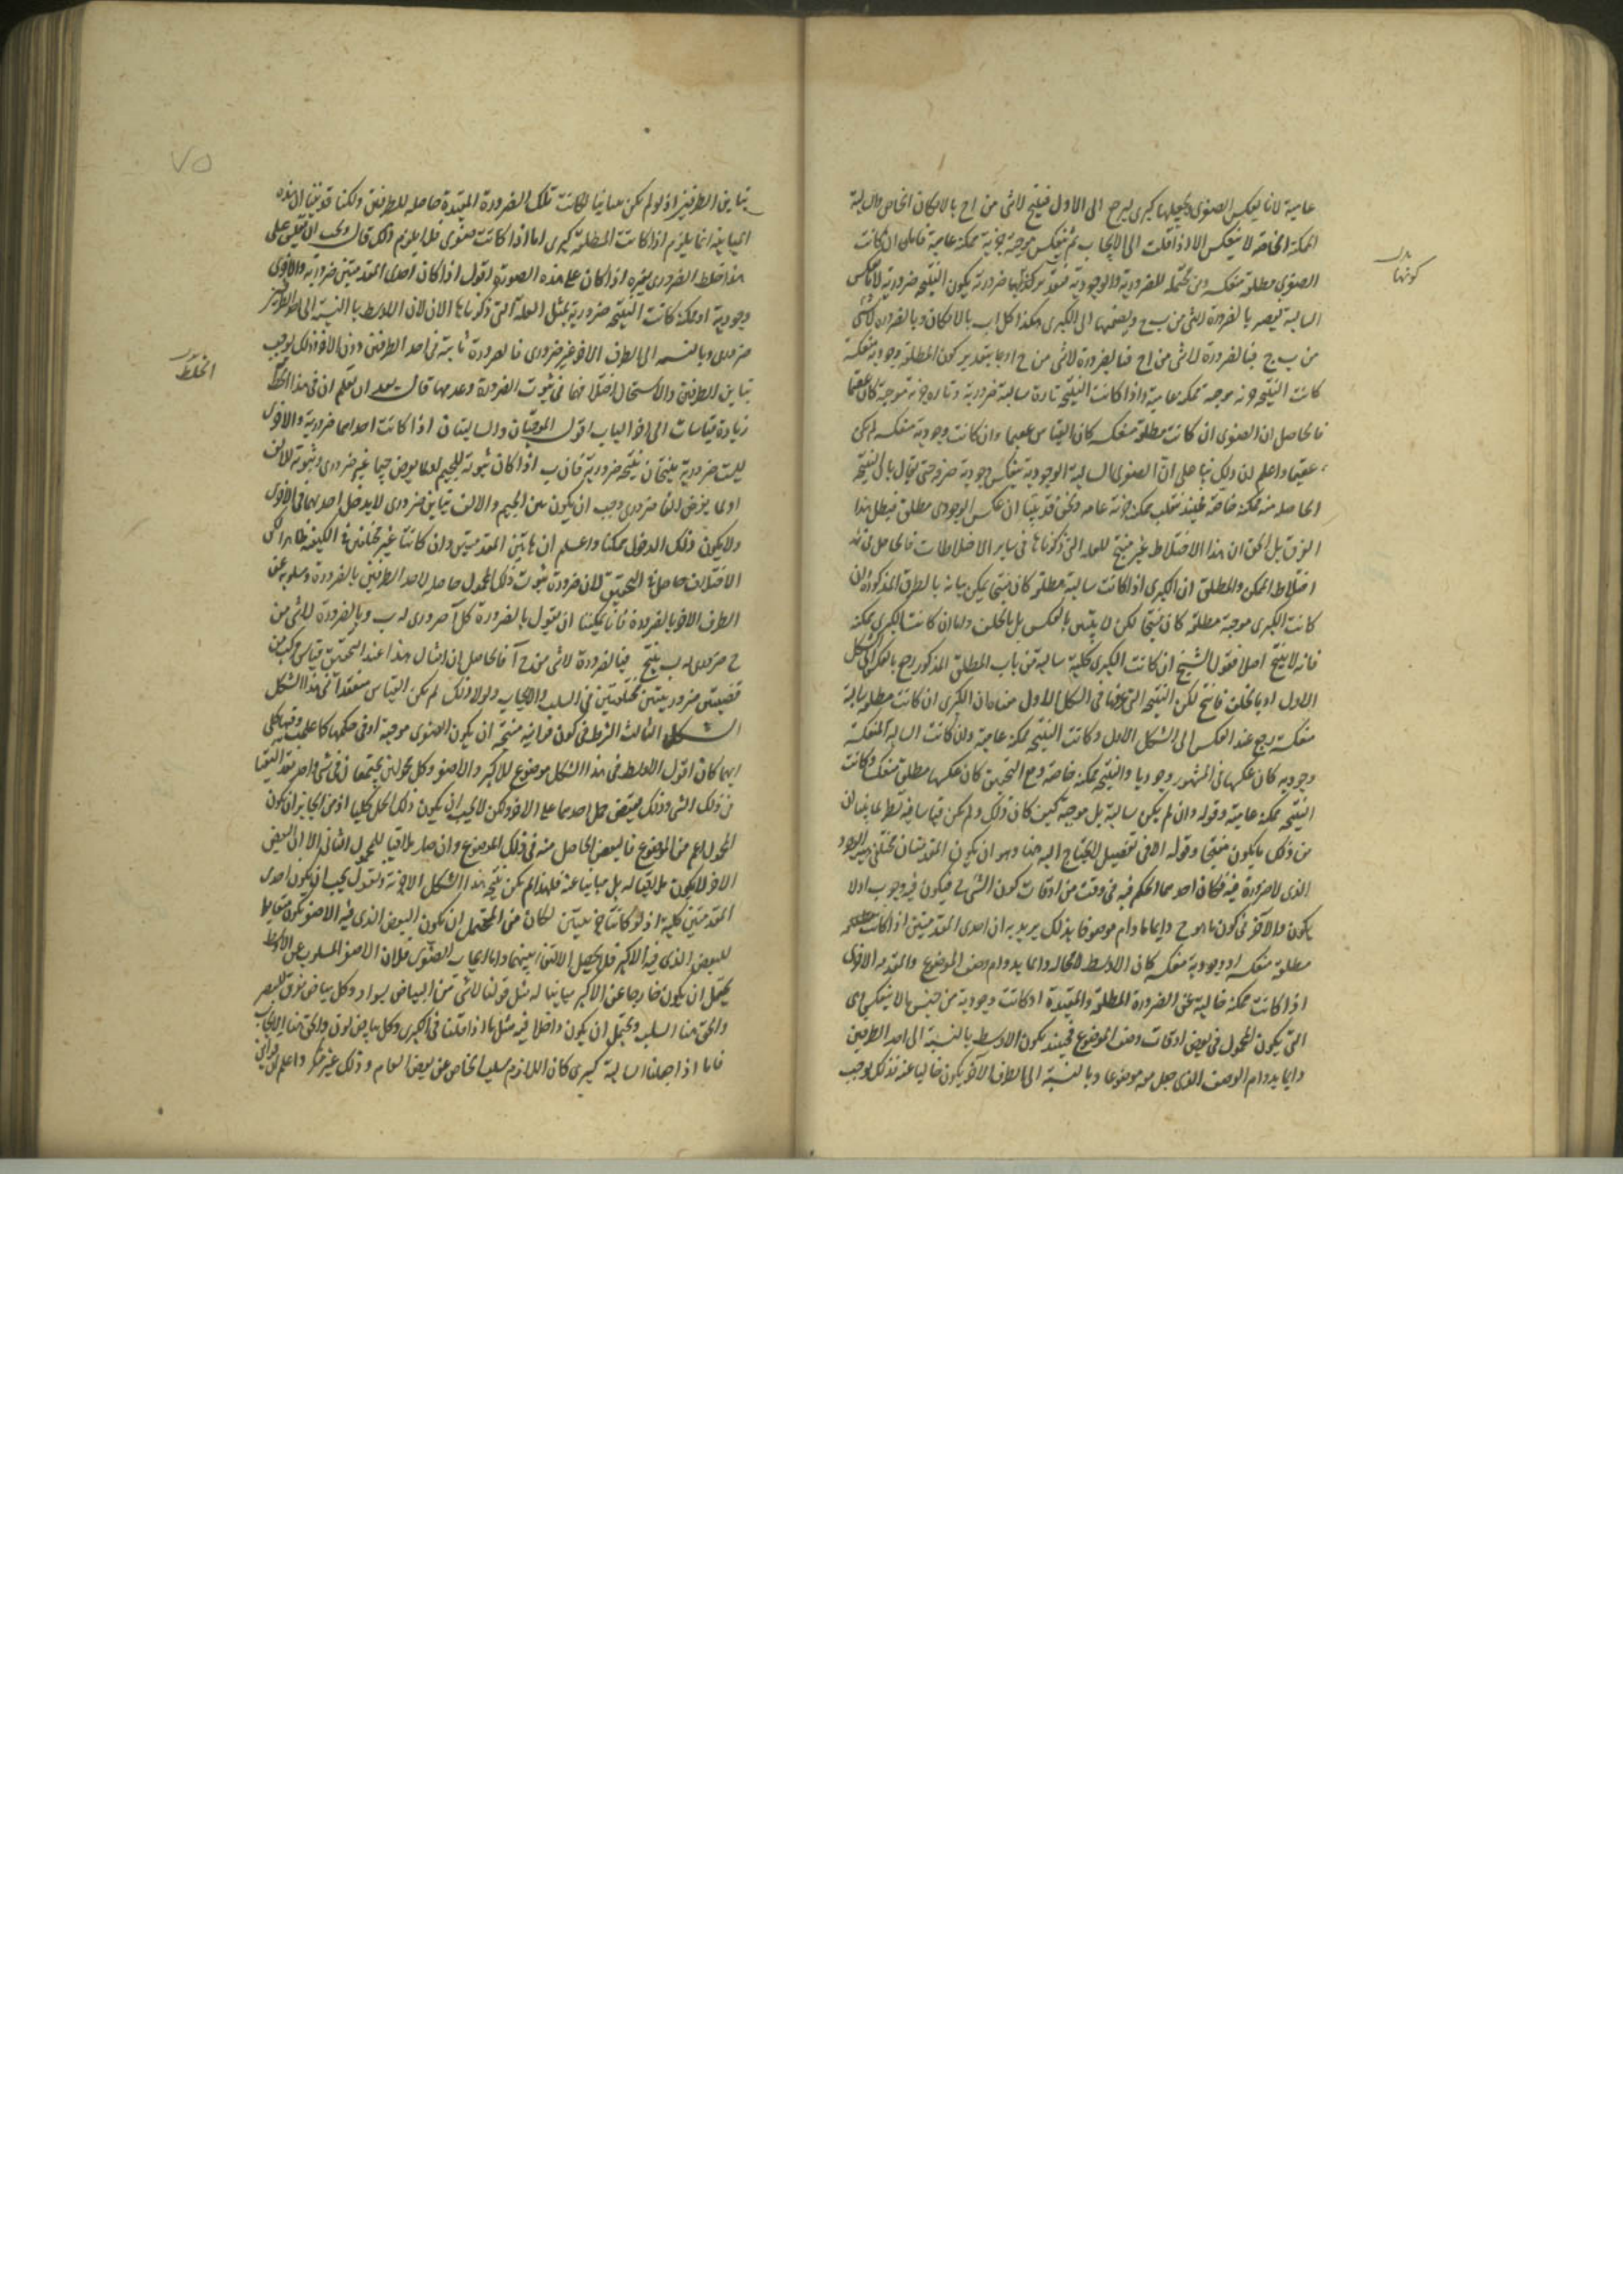 عامية لانا نعكس الصغرى ونجعلها كبرى ليرجع الى الاول فينتج لا شى من ا ج بالامكان الخاص والسالبة
الممكنة الخاصة لا ينعكس الا اذا قلبت الى الايجاب ثم ينعكس موجبة جزئية ممكنة عامية فاما ان كانت
الصغرى مطلقة منعكسة وهى محتملة للضرورية والوجودية فبتقدير كونها ضرورية يكون النتيجة ضرورية لانا نعكس
كونها
السالبة فيصير بالضرورة لا شى من ب ج ونضمها الى الكبرى هكذا كل ا ب بالامكان وبالضرورة لا شى
من ب ج فبالضرورة لا شى من ا ج فبالضرورة لا شى من ج ا وبتقدير كون المطلقة وجودية منعكسة
كانت النتيجة جزئية موجبة ممكنة عامية واذا كانت النتيجة تارة سالبة ضرورية وتارة جزئية موجبة كان عقيما
فالحاصل ان الصغرى ان كانت مطلقة منعكسة كان القياس عقيما وان كانت وجودية منعكسة لم يكن
عقيما واعلم ان ذلك بناء على ان الصغرى السالبة الوجودية ينعكس وجودية صرفة حتى يقال بان النتيجة
الحاصلة منه ممكنة خاصة فحينئذ تنقلب ممكنة جزئية عامة ونحن قد بينا ان عكس الوجودى مطلق فبطل هذا
الفرق بل الحق ان هذا الاختلاط غير منتج للعلة التى ذكرناها فى ساير الاختلاطات فالحاصل فى هذا
اختلاط الممكن والمطلق ان الكبرى اذا كانت سالبة مطلقة كان منتجا يمكن بيانه بالطرق المذكورة وان
كانت الكبرى موجبة مطلقة كان منتجا لكن لا يتبين بالعكس بل بالخلف واما ان كانت الكبرى ممكنة
فانه لا ينتج اصلا فقول الشيخ ان كانت الكبرى كلية سالبة من باب المطلق المذكور رجع بالعكس الى الشكل
الاول او بالخلف فانتج لكن النتيجة التى عرفتها فى الشكل الاول معناه ان الكبرى ان كانت مطلقة سالبة
منعكسة رجع عند العكس الى الشكل الاول وكانت النتيجة ممكنة عامية وان كانت السالبة المنعكسة
وجودية كان عكسها فى المشهور وجوديا والنتيجة ممكنة خاصة ومع التحقيق كان عكسها مطلقة منعكسة وكانت
النتيجة ممكنة عامية وقوله وان لم يكن سالبة بل موجبة كيف كان ذلك ولم يكن قياسا فيه نظر لما بينا ان
من ذلك ما يكون منتجا وقوله الا فى تفصيل لا يحتاج اليه هنا وهو ان يكون المقدمتان مختلفتين
الذى لا ضرورة فيه فكان احدهما الحكم فيه فى وقت من اوقات كون الشى ج فيكون فيه وجوب او لا
يكون والآخر فى كون ما هو ج دايما ما دام موصوفا بذلك يريد به ان احدى المقدمتين اذا كانت
مطلقة منعكسة او وجودية منعكسة كان الاوسط لا محالة دايما بدوام وصف الموضوع والمقدمة الاخرى
اذا كانت ممكنة خالية عن الضرورة المطلقة والمقيدة او كانت وجودية من جنس ما لا ينعكس اى
التى يكون المحمول فى بعض اوقات وصف الموضوع فحينئذ يكون الاوسط بالنسبة الى احد الطرفين
دايما بدوام الوصف الذى جعل معه موضوعا وبالنسبة الى الطرف الآخر يكون خاليا عنه فذلك يوجب
٧٥
تباين الطرفين اذ لو لم يكن مباينا لكانت تلك الضرورة المقيدة حاصلة للطرفين ولكنا قد بينا ان هذه
المباينة انما يلزم اذا كانت المطلقة كبرى اما اذا كانت صغرى فلا يلزم ذلك قال ويجب ان تقيس على
هذا خلط الضرورى بغيره اذا كان على هذه الصورة اقول اذا كان احدى المقدمتين ضرورية والاخرى
وجودية او ممكنة كانت النتيجة ضرورية لمثل العلة التى ذكرناها الان لان الاوسط بالنسبة الى احد الطرفين
ضرورى وبالنسبة الى الطرف الاخر غير ضرورى فالضرورة ثابتة فى احد الطرفين دون الاخر وذلك يوجب
الخلط
تباين الطرفين والاستحال اختلافهما فى ثبوت الضرورة وعدمها قال بعد ان تعلم ان فى هذا الخلط
زيادة قياسات الى اخر الباب اقول الموجبتان والسالبتان اذا كانت احداهما ضرورية والاخرى
ليست ضرورية ينتجان نتيجة ضرورية فان ب اذا كان ثبوته للجيم او لما يعرض جيما غير ضرورى وثبوته لالف
او لما يعرض الفا ضرورى وجب ان يكون بين الجيم والالف تباين ضرورى لا يدخل احدهما فى الاخر
ولا يكون ذلك الدخول ممكنا واعلم ان هاتين المقدمتين وان كانتا غير مختلفتين فى الكيفية ظاهرا لكن
الاختلاف حاصل فى التحقيق لان ضرورة ثبوت ذلك المحمول حاصلة لاحد الطرفين بالضرورة ومسلوبة عن
الطرف الاخر بالضرورة فانا يمكننا ان نقول بالضرورة كل آ ضرورى له ب وبالضرورة لا شى من
ج ضرورى له ب ينتج فبالضرورة لا شى من ج آ فالحاصل ان امثال هذا عند التحقيق قياس مركب من
قضيتين ضروريتين مختلفتين فى السلب والايجاب ولولا ذلك لم يكن القياس منعقدا فى هذا الشكل
الشكل الثالث الشرط فى كون قراينه منتجة ان يكون الصغرى موجبة او فى حكمها كما علمت وفيها كلى
ايهما كان اقول الاوسط فى هذا الشكل موضوع للاكبر والاصغر وكل محمولين يجتمعان فى شى واحد فقد التقيا
فى ذلك الشى وذلك يقتضى حمل احدهما على الاخر ولكن لا يجب ان يكون ذلك الحمل كليا اذ من الجايز ان يكون
المحمول اعم من الموضوع فالبعض الحاصل منه فى ذلك الموضوع وان صار ملاقيا للمحمول الثانى الا ان البعض
الاخر لا يكون ملاقيا له بل مباينا عنه فلهذا لم يكن نتيجة هذا الشكل الا جزئية ونقول يجب ان يكون احدى
المقدمتين كلية اذ لو كانتا جزئيتين لكان من المحتمل ان يكون البعض الذى فيه الاصغر يكون مغايرا
للبعض الذى فيه الاكبر فلا يحصل الالتقاء بينهما واما ايجاب الصغرى فلان الاصغر المسلوب عن الاوسط
يحتمل ان يكون خارجا عن الاكبر مباينا له مثل قولنا لا شى من البياض بسواد وكل بياض مفرق للبصر
والحق هنا السلب ويحتمل ان يكون داخلا فيه مثل ما اذا قلنا فى الكبرى وكل بياض لون والحق هنا الايجاب
فاما اذا جعلنا السالبة كبرى كان اللازم سلب الخاص عن بعض العام وذلك غير منكر واعلم ان قراين